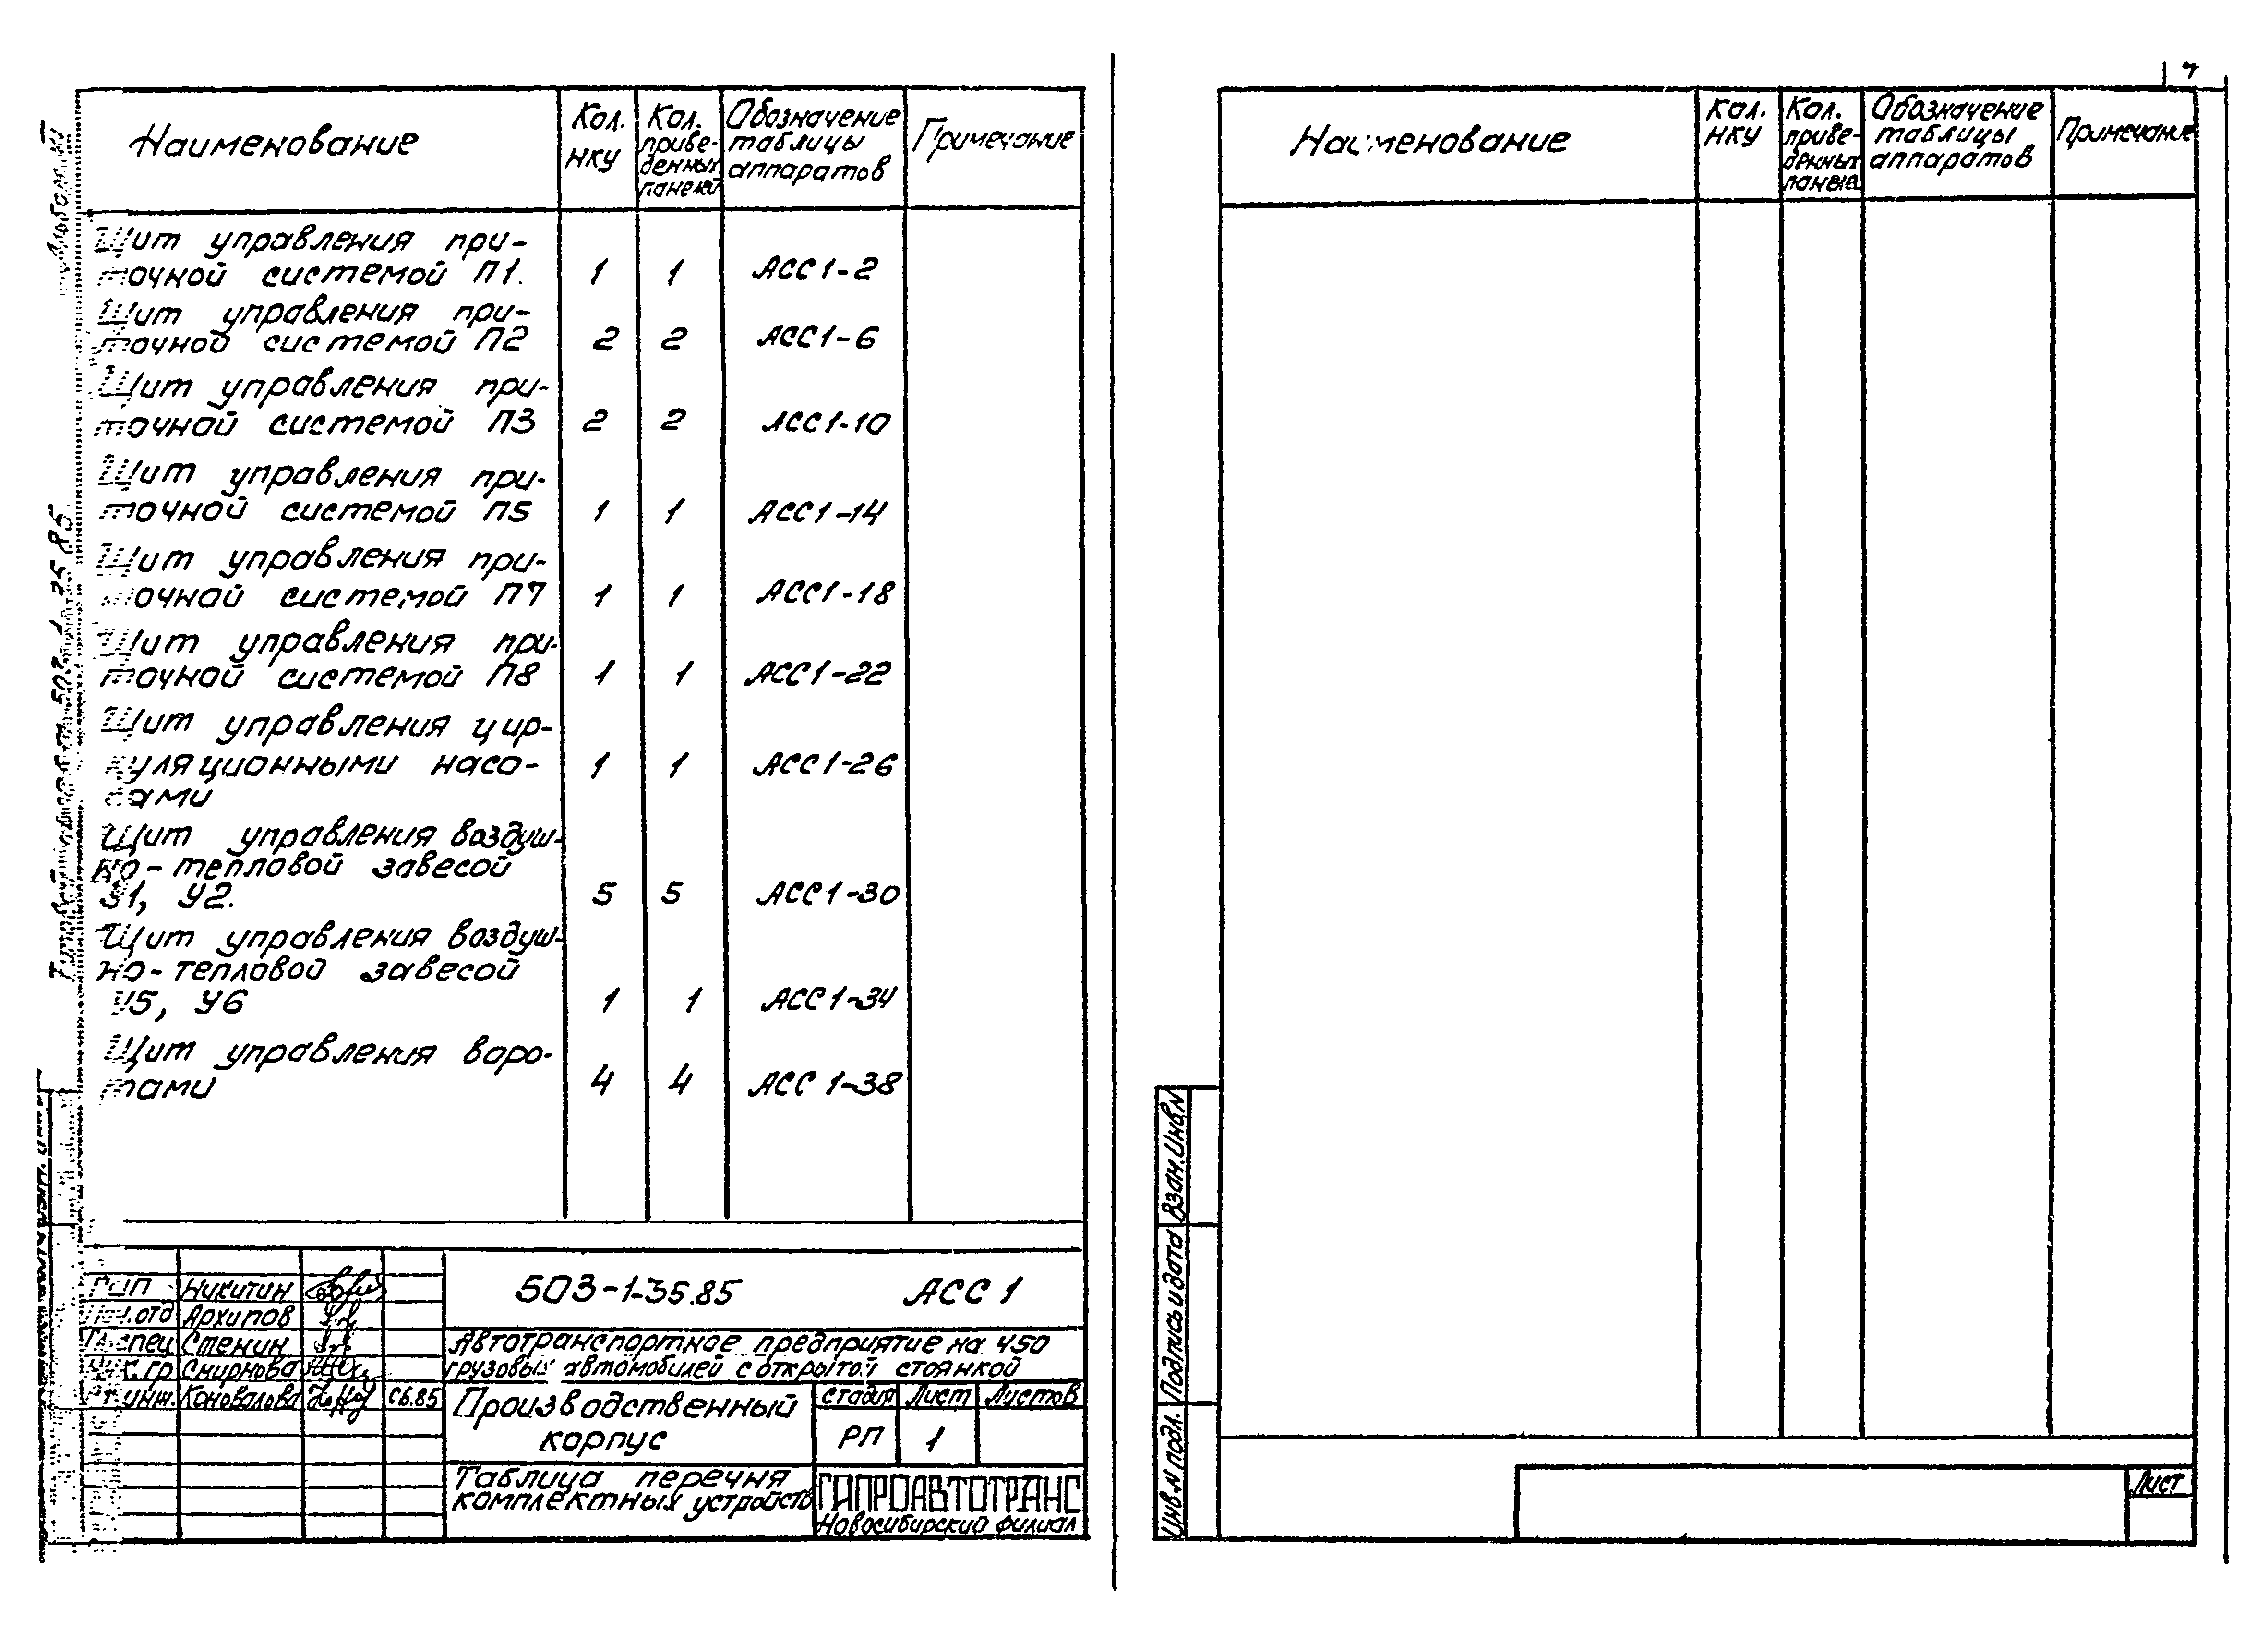 Наименование
Кол. НКУ
Кол. приведенных панелей
Обозначение таблицы аппаратов
Примечание
Щит управления при-
точной системой П1. 1 1 АСС1-2
Щит управления при-
точной системой П2 2 2 АСС1-6
Щит управления при-
точной системой П3 2 2 АСС1-10
Щит управления при-
точной системой П5 1 1 АСС1-14
Щит управления при-
точной системой П7 1 1 АСС1-18
Щит управления при-
точной системой П8 1 1 АСС1-22
Щит управления цир-
куляционными насо- 1 1 АСС1-26
сами
Щит управления воздуш-
но-тепловой завесой
У1, У2. 5 5 АСС1-30
Щит управления воздуш-
но-тепловой завесой
У5, У6 1 1 АСС1-34
Щит управления воро-
тами 4 4 АСС 1-38
ГИП Никитин
Нач.отд Архипов
Гл.спец Стенин
Рук.гр Смирнова
Ст.инж. Коновалова 06.85
503-1-35.85 АСС 1
Автотранспортное предприятие на 450
грузовых автомобилей с открытой стоянкой
Производственный
корпус
Стадия Лист Листов
РП 1
Таблица перечня
комплектных устройств
ГИПРОАВТОТРАНС
Новосибирский филиал
7
Наименование
Кол. НКУ
Кол. приведенных панелей
Обозначение таблицы аппаратов
Примечание
Взам.Инв.N
Подпись и дата
Инв.N подл.
Лист